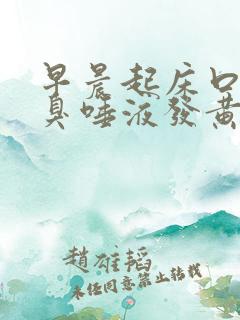 早晨起床口
臭唾液發黄
趙雄韜
未经同意禁止转载